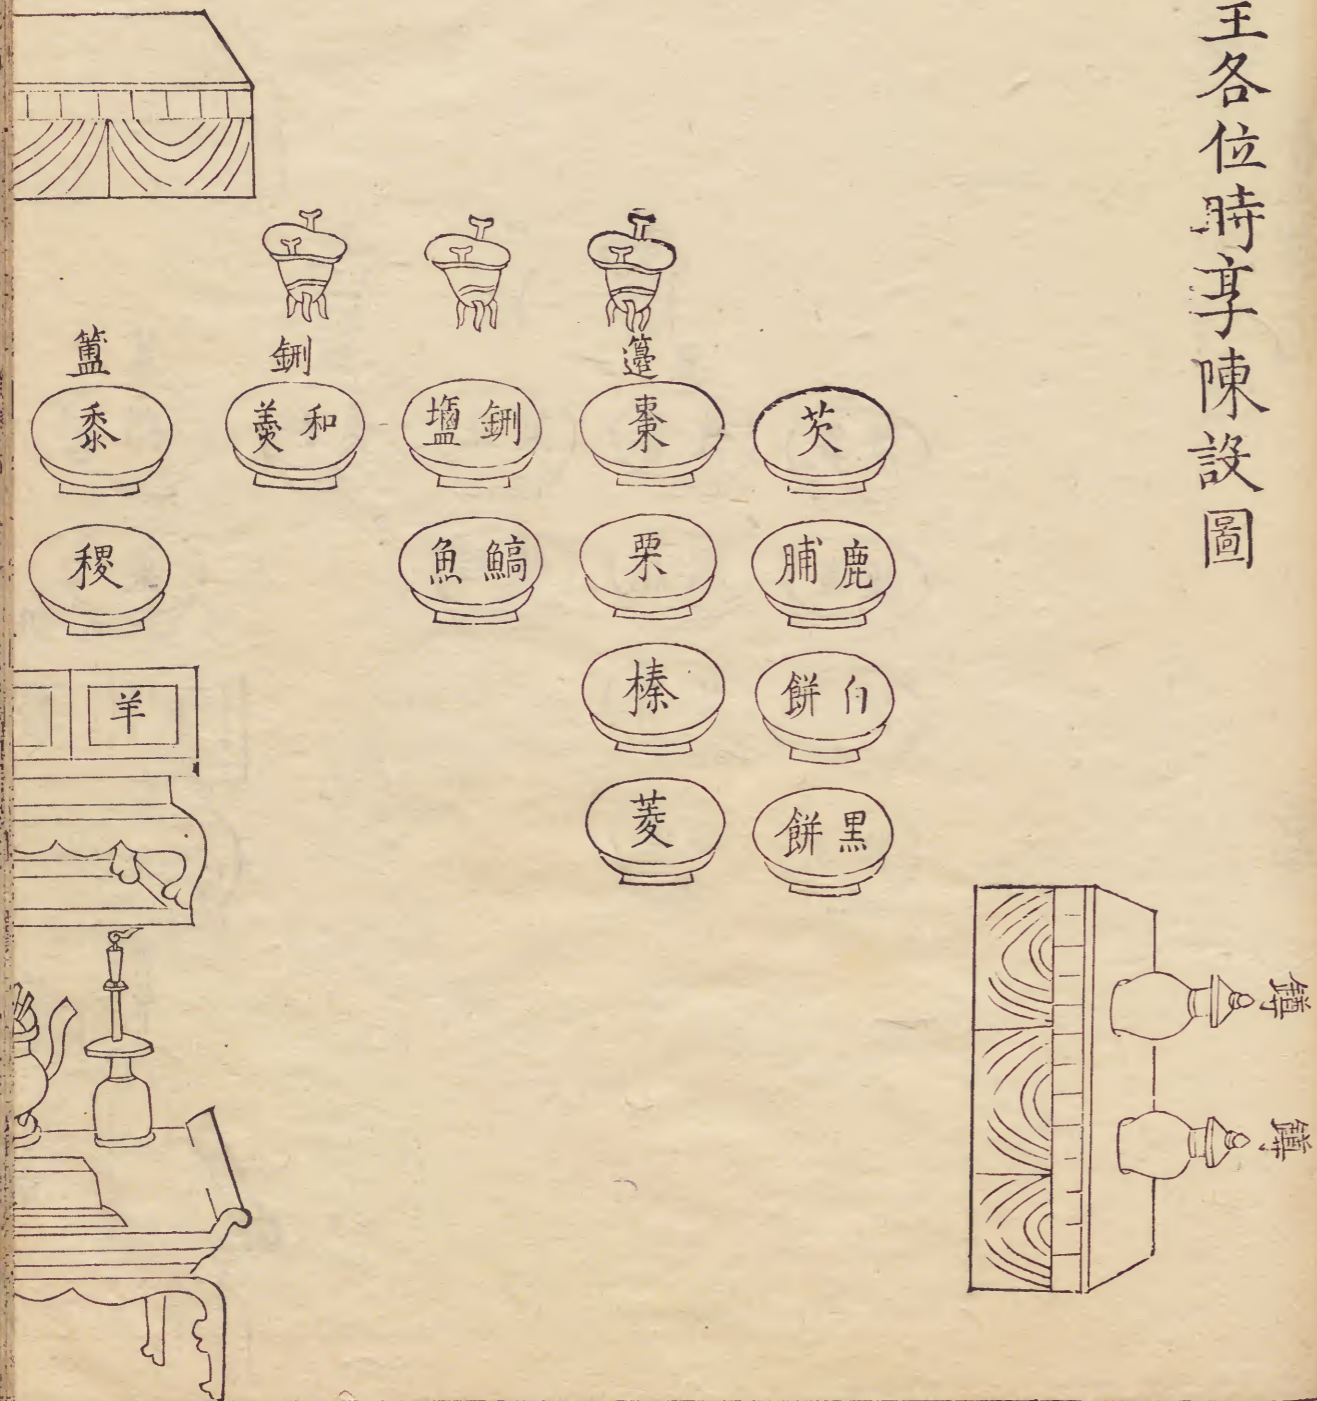 王各位時享陳設圖
罇
罇
芡
鹿脯
白餅
黑餅
籩
棗
栗
榛
菱
鉶鹽
鱐魚
鉶
和羹
簠
黍
稷
羊